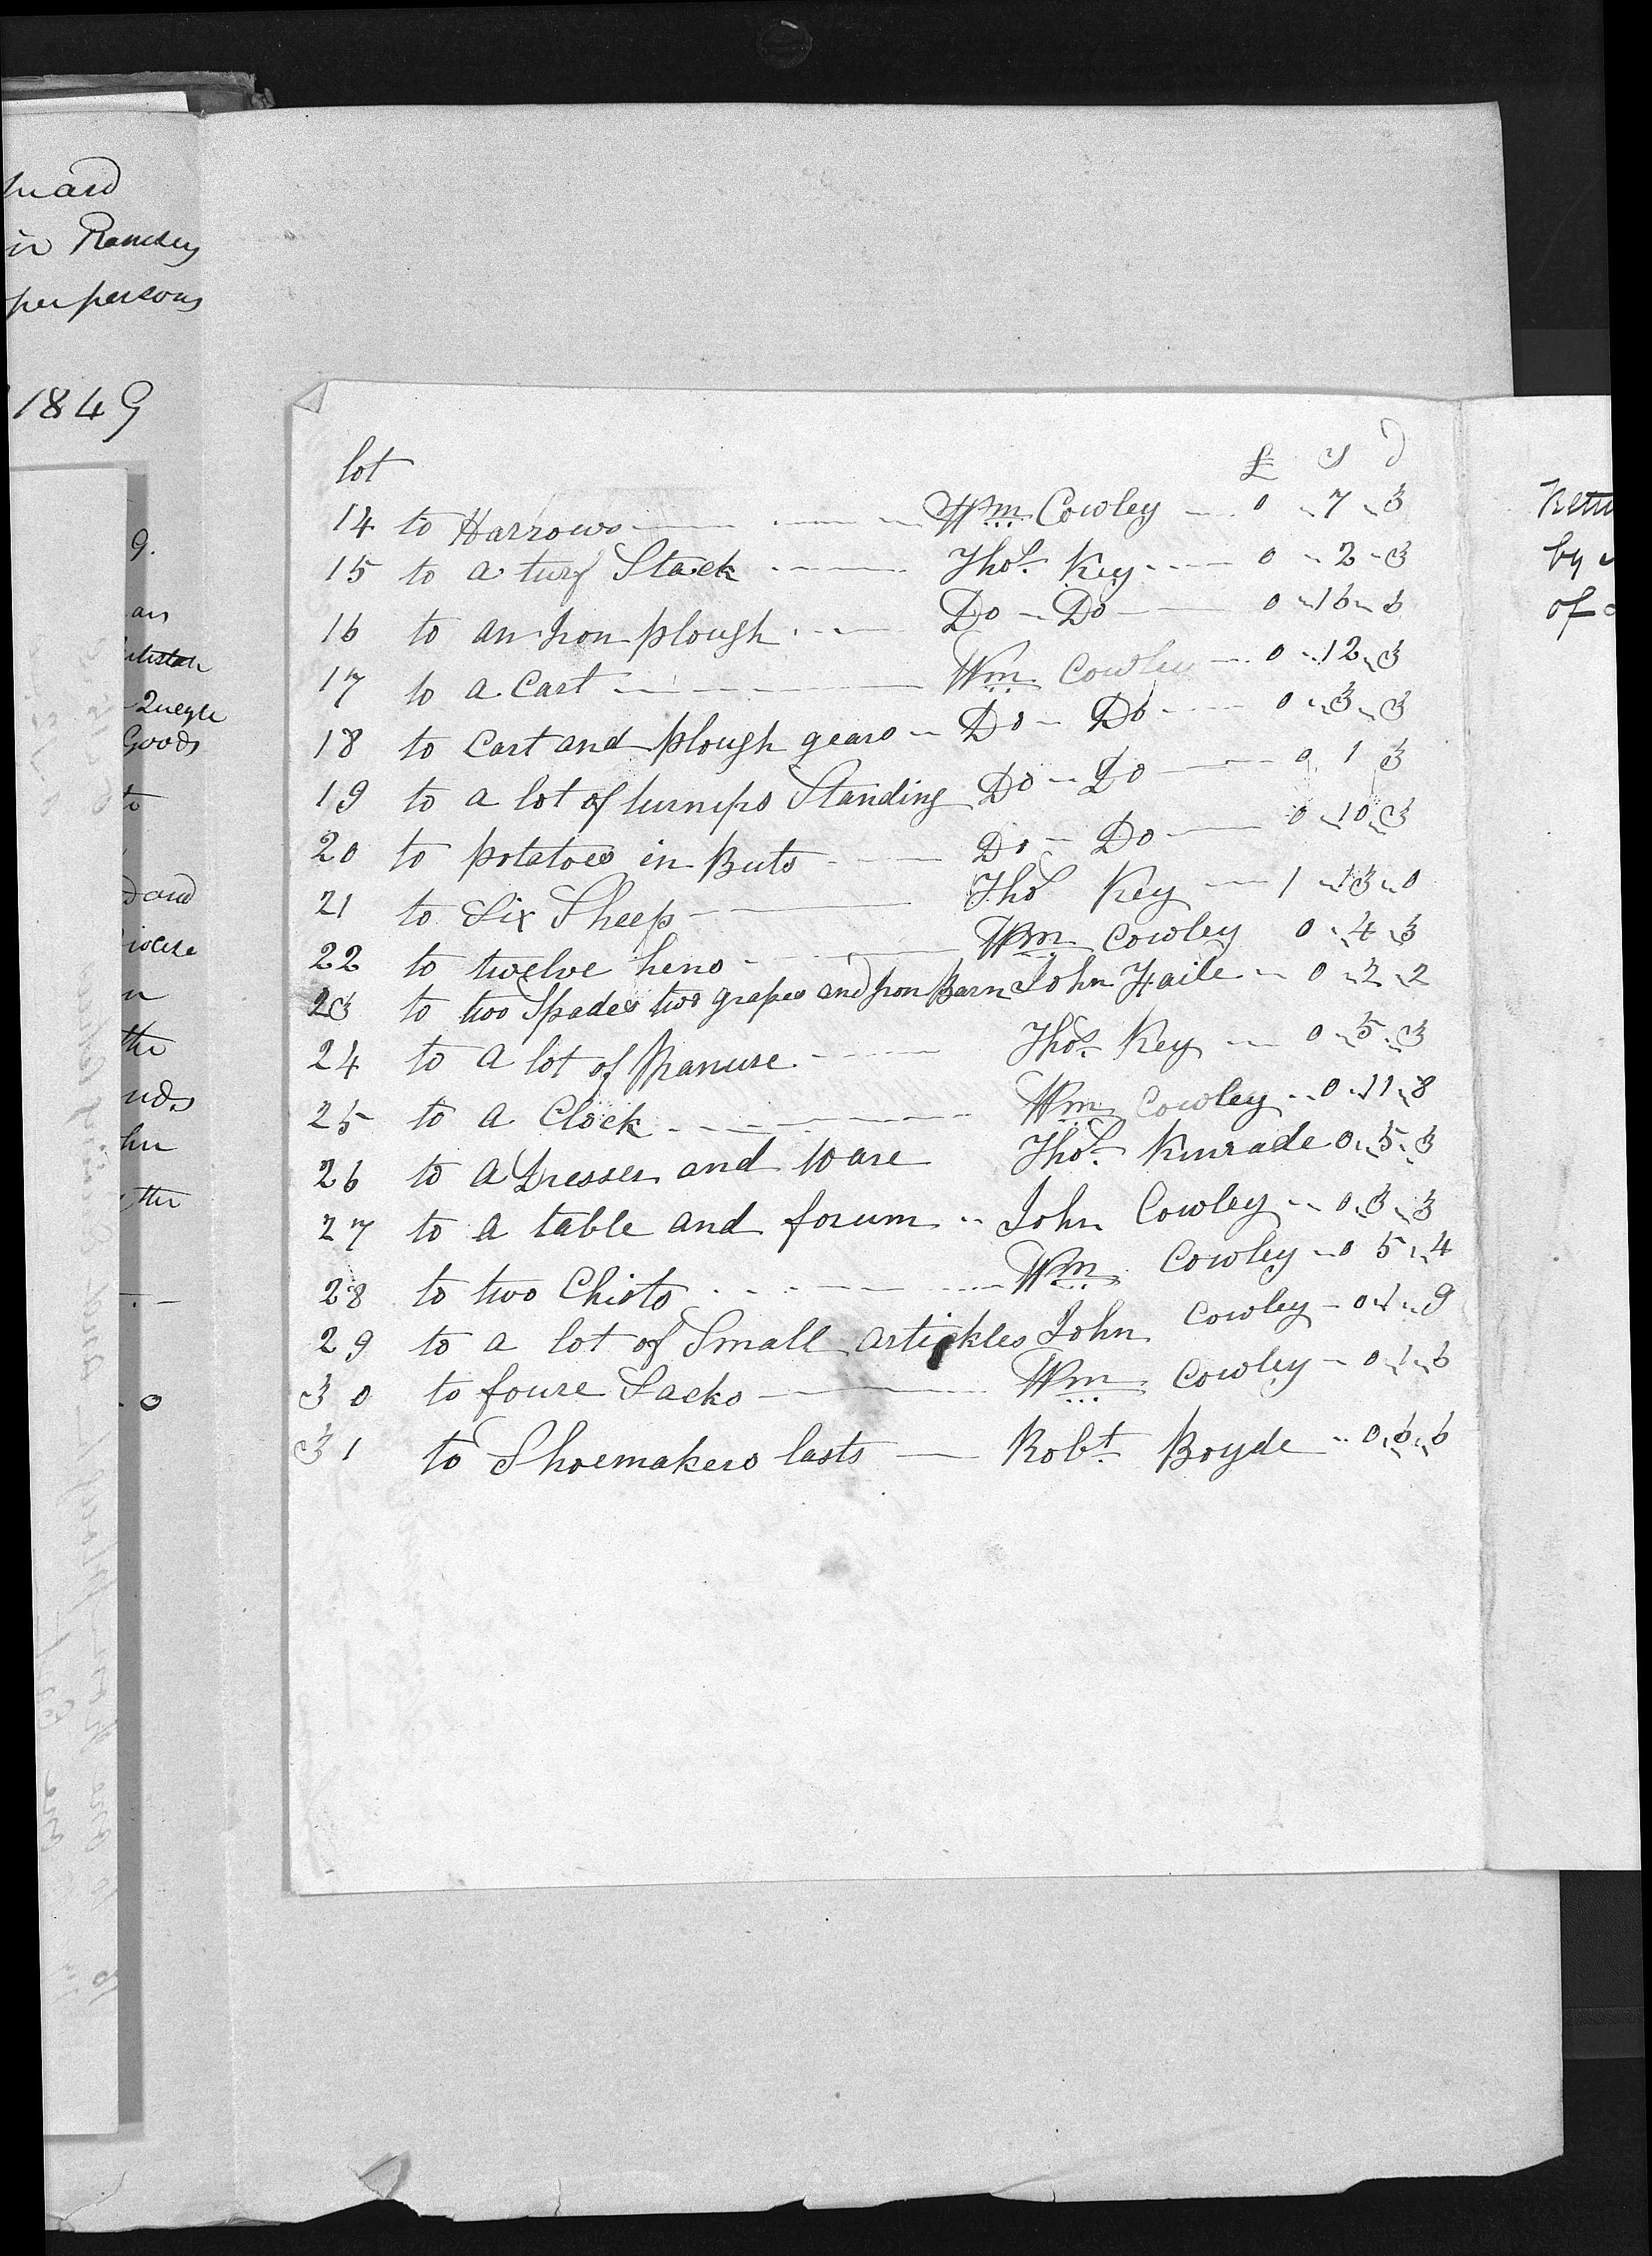 in Ramsey
per persons
1849
lot £ S D
14 to Harrows Wm Cowley 0 7 3
15 to a turf Stack Thos. Key 0 2 3
16 to an Iron plough Do Do 0 16 6
17 to a Cart Wm Cowley 0 12 3
18 to Cart and plough gears Do Do 0 3 3
19 to a lot of turnips Standing Do Do 0 1 3
20 to potatoes in Buts Do Do 0 10 3
21 to Six Sheep Thos Key 1 13 0
22 to twelve hens Wm Cowley 0 4 3
23 to two Spades two grapes and Iron Barn John Faile 0 2 2
24 to a lot of Manure Thos. Key 0 5 3
25 to a Clock Wm Cowley 0 11 8
26 to a Dresser and Ware Thos. Kinrade 0 5 3
27 to a table and forum John Cowley 0 3 3
28 to two Chists Wm Cowley 0 5 4
29 to a lot of Small artickles John Cowley 0 1 9
30 to foure Sacks Wm Cowley 0 1 6
31 to Shoemakers lasts Robt. Boyde 0 6 6
9.
Quayle
Goods
to
and
the
the
0
by
of